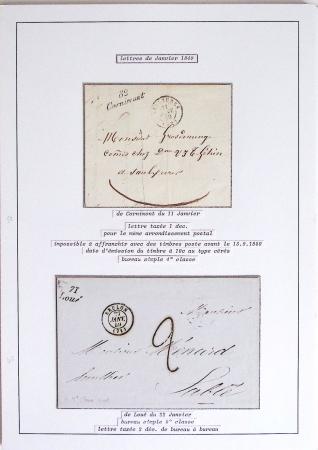 lettres de Janvier 1849
82
Cornimont
Monsieur
Commis chez
à Saulxures
de Cornimont du 11 Janvier
lettre taxée 1 dec.
pour le même arrondissement postal
impossible à affranchir avec des timbres poste avant le 15.9.1850
date d'émission du timbre à 10c au type cérès
bureau simple 4me classe
71
Loué
JANV.
(71)
2
Monsieur
Monsieur Ménard
Sablé
de Loué du 22 Janvier
bureau simple 5me classe
lettre taxée 2 déc. de bureau à bureau